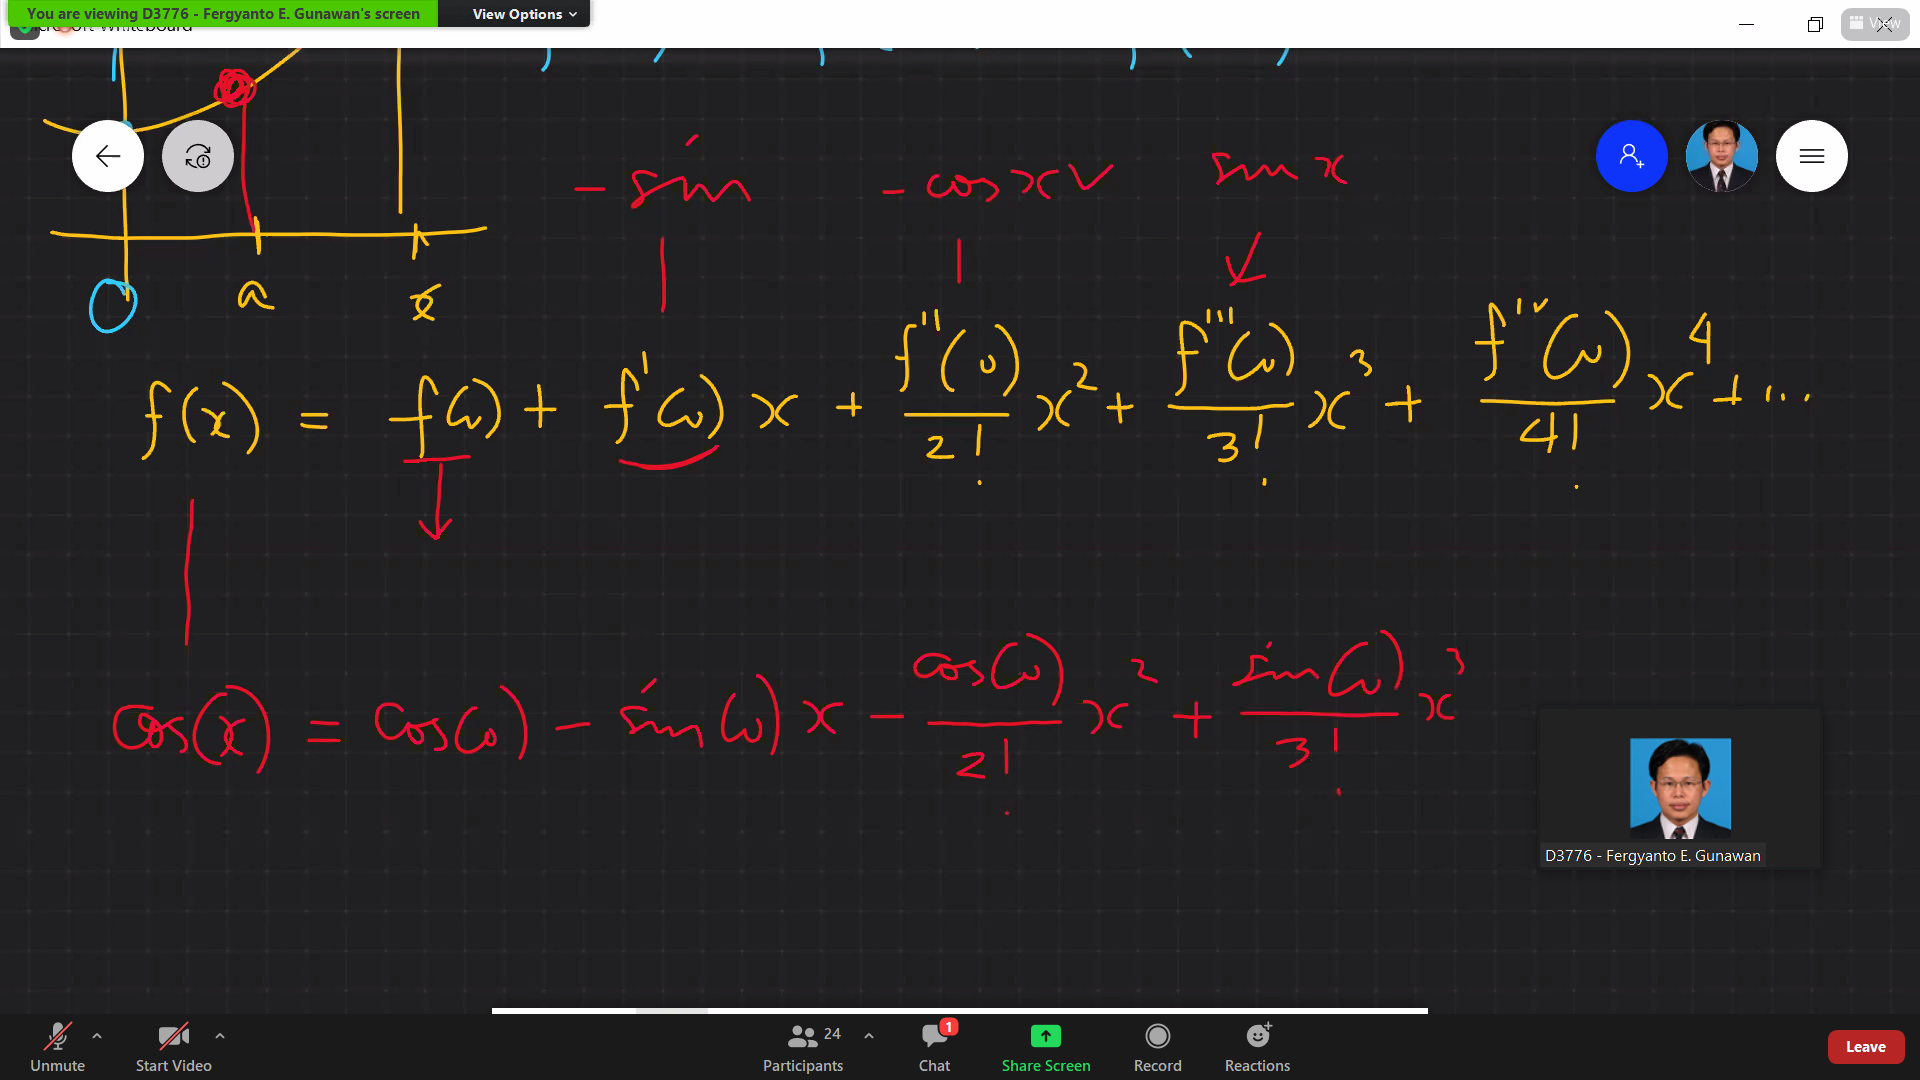 You are viewing D3776 - Fergyanto E. Gunawan's screen
View Options
View
- sin - cos x sin x
0 a x
f(x) = f(0) + f'(0) x + f''(0)/2! x² + f'''(0)/3! x³ + f'ᵛ(0)/4! x⁴ + ...
cos(x) = cos(0) - sin(0) x - cos(0)/2! x² + sin(0)/3! x³
D3776 - Fergyanto E. Gunawan
Unmute
Start Video
24
Participants
1
Chat
Share Screen
Record
Reactions
Leave